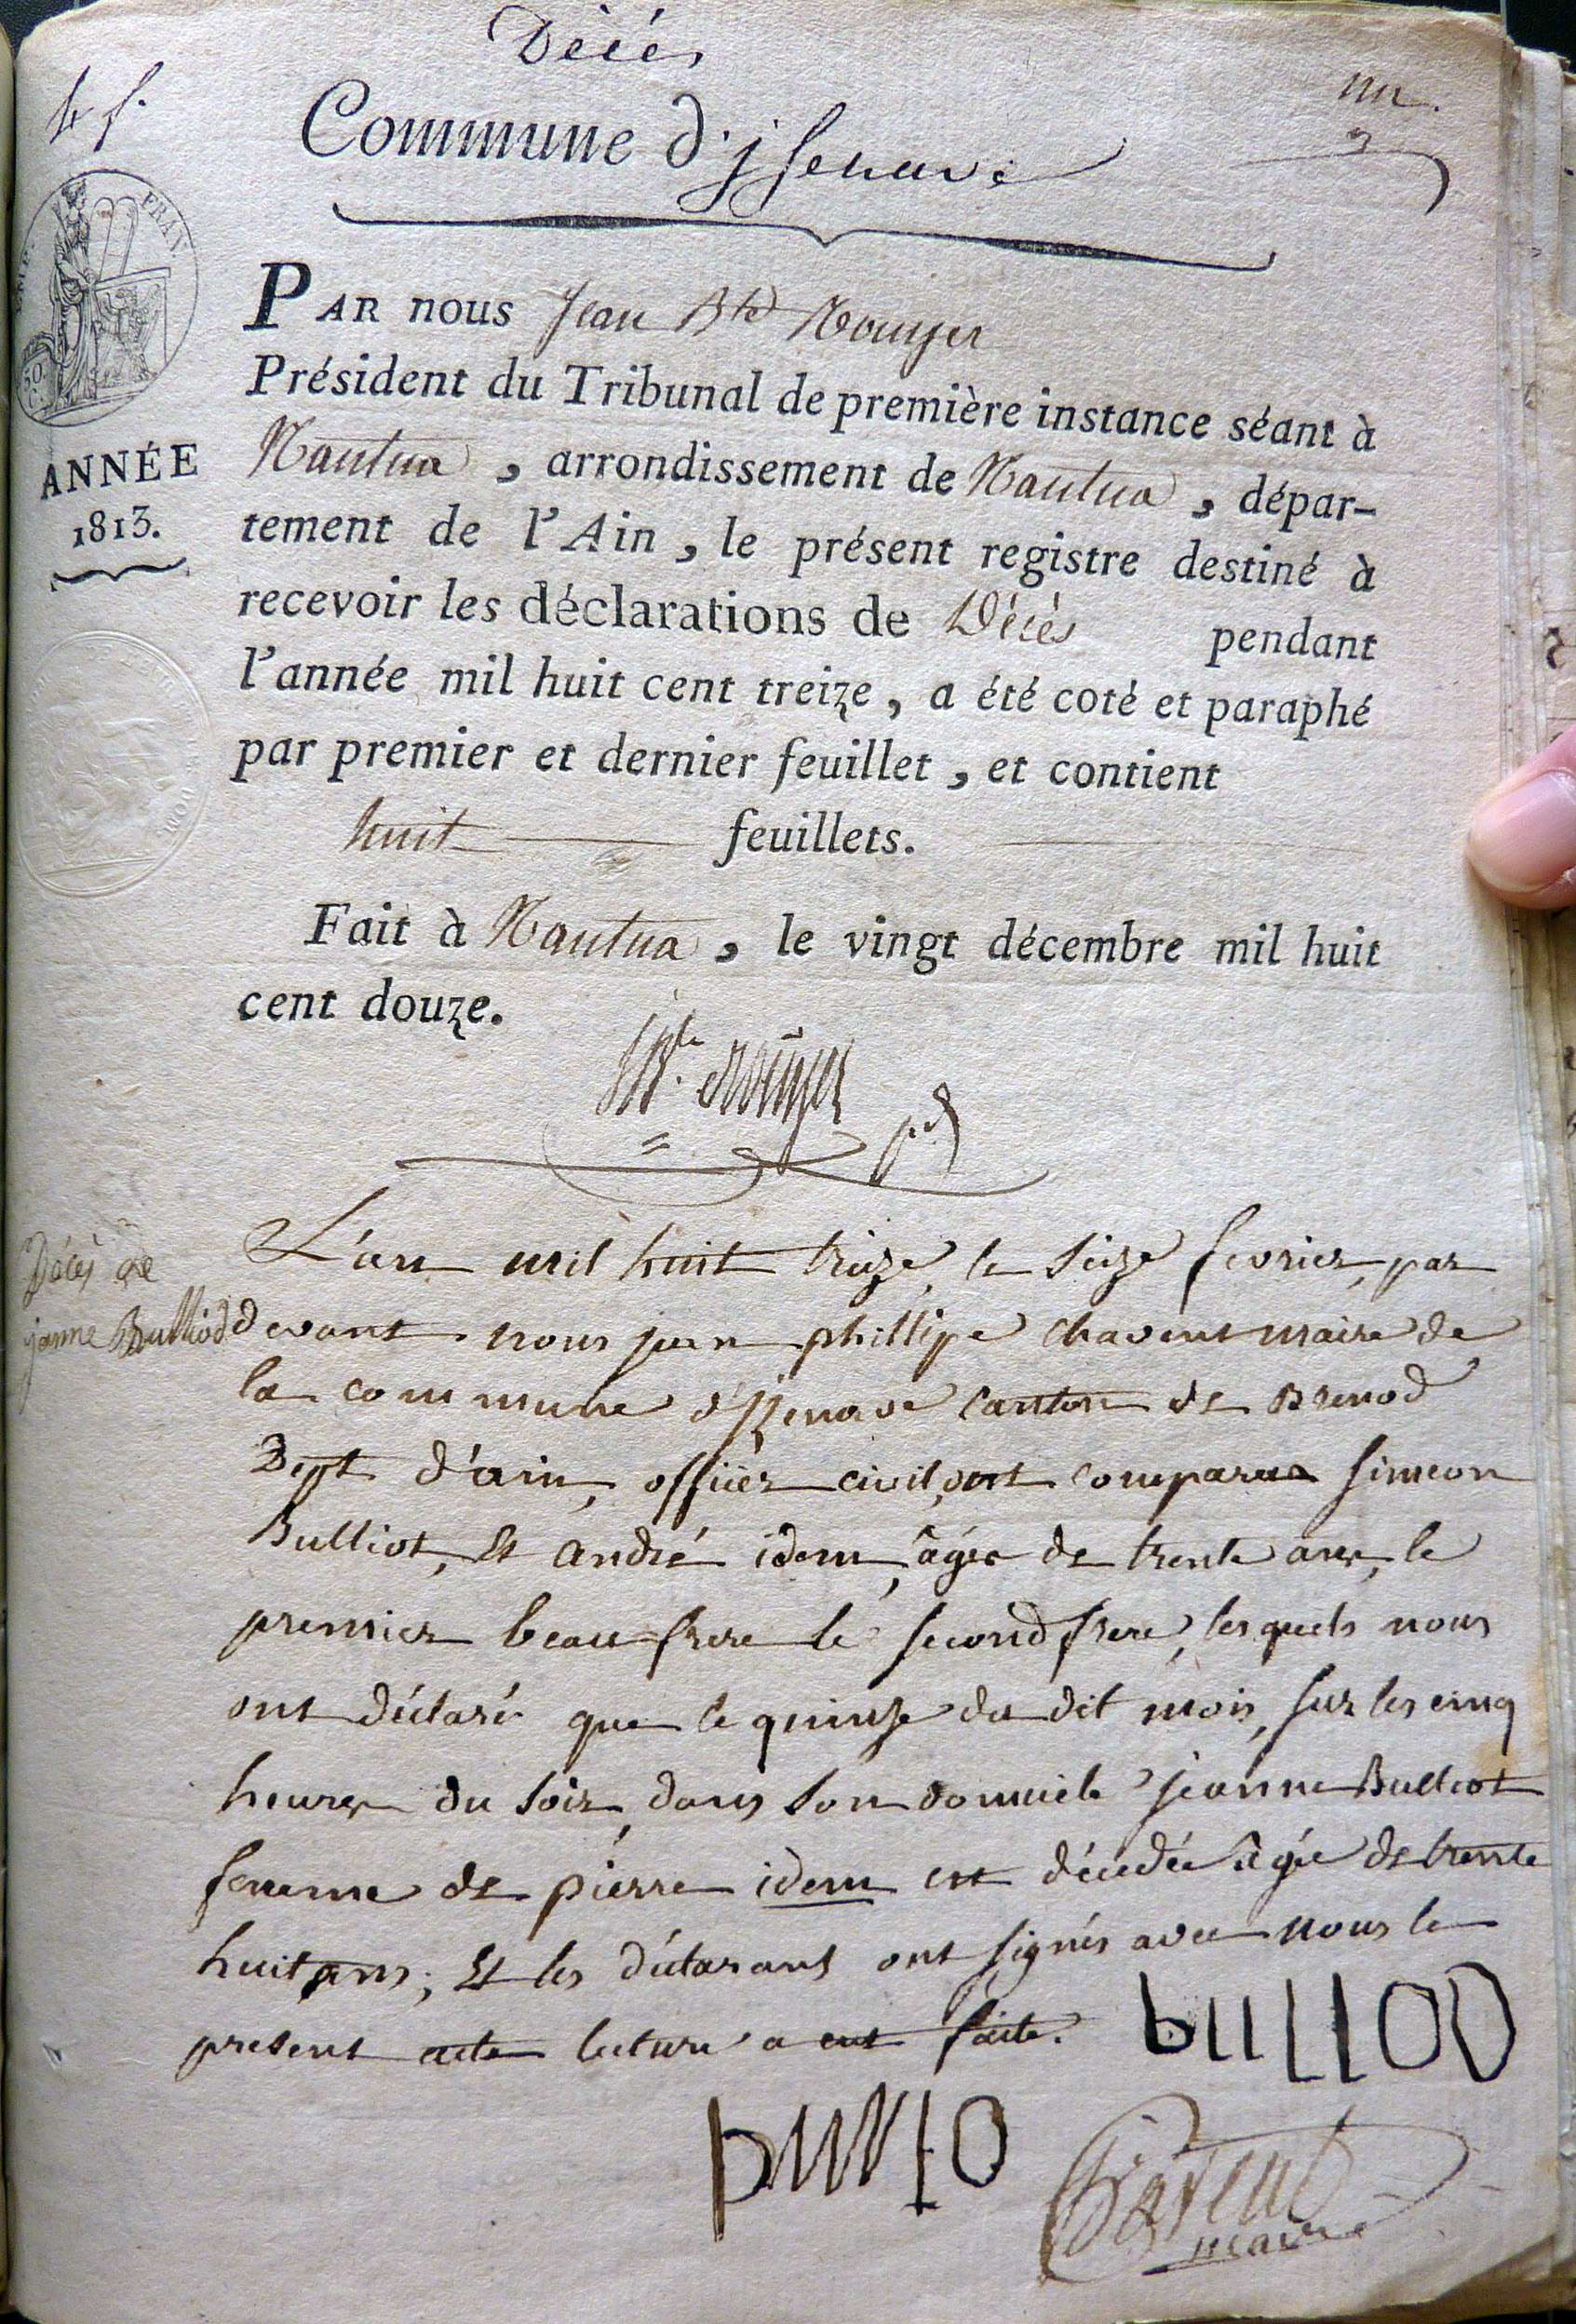 Décés
4 f.
un.
Commune d'jsenave
FRAN.
50.
C.
PAR nous Jean Bte Rouyer
Président du Tribunal de première instance séant à
ANNÉE
1813.
Nantua, arrondissement de Nantua, dépar-
tement de l'Ain, le présent registre destiné à
recevoir les déclarations de Décès pendant
l'année mil huit cent treize, a été coté et paraphé
par premier et dernier feuillet, et contient
huit feuillets.
Fait à Nantua, le vingt décembre mil huit
cent douze.
JBte Rouyer
pdt
Décés de
jeanne Bulliod
L'an mil huit treize, le seize fevrier, par
devant nous jean phillipe chavent maire de
la commune d'Izenave canton de Brenod
Dept d'ain, officier civil, ont comparus simeon
Bulliot, et andré idem, âgés de trente ans, le
premier beau=frere le second frere, lesquels nous
ont déclaré que le quinze du dit mois, sur les cinq
heures du soir, dans son domicile jeanne Bulliot
femme de pierre idem est décédée âgée de trente
huit ans; et les déclarans ont signés avec nous le
present acte lecture a eut faite.
bulliod
Chavent
maire